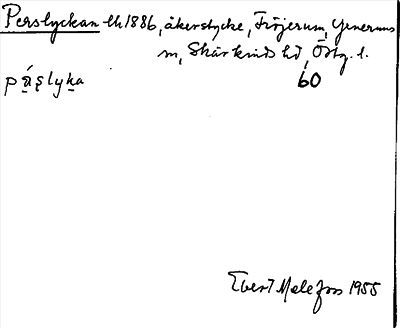 Perslyckan lh 1886, åkerstycke, Fröjerum, Yxnerums
sn, Skärkinds hd, Östg. l.
60
Ebert Malefors 1955